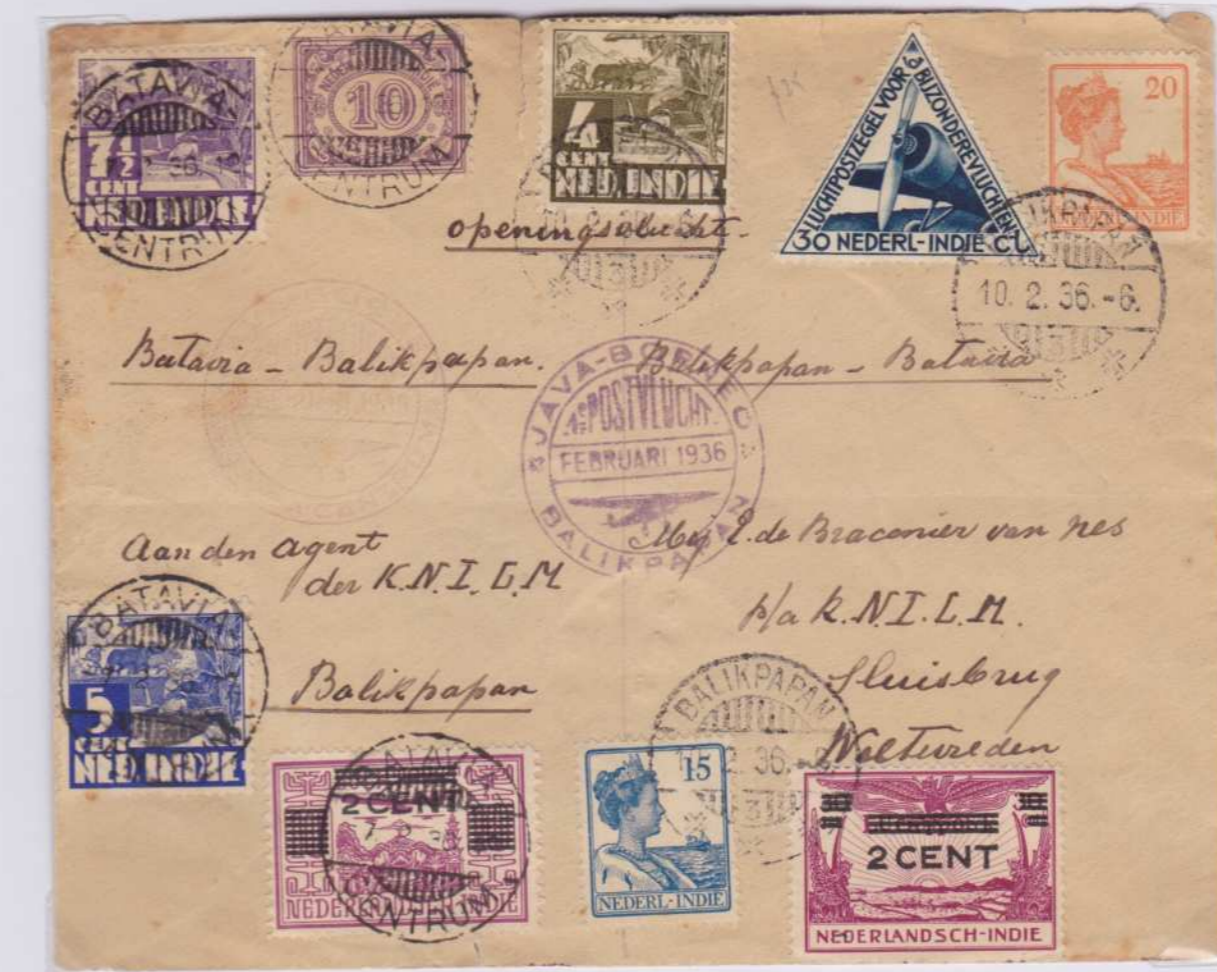 BATAVIA
7½
CENT
NED. INDIE
CENTRUM
10
CENTRUM
4
CENT
NED. INDIE
LUCHTPOSTZEGEL VOOR BIJZONDERE VLUCHTEN
30 NEDERL-INDIE CT
20
10. 2. 36.-6.
openingsvlucht-
Batavia - Balikpapan. Balikpapan - Batavia
JAVA-BORNEO
1e POSTVLUCHT
FEBRUARI 1936
BALIKPAPAN
Aan den Agent
der K.N.I.L.M
Balikpapan
de Braconier van Nes
p/a K.N.I.L.M.
Sluisbrug
Weltevreden
BATAVIA
5
CENT
NED. INDIE
BATAVIA
2 CENT
CENTRUM
BALIKPAPAN
2. 36.
15
NEDERL-INDIE
2 CENT
NEDERLANDSCH-INDIE